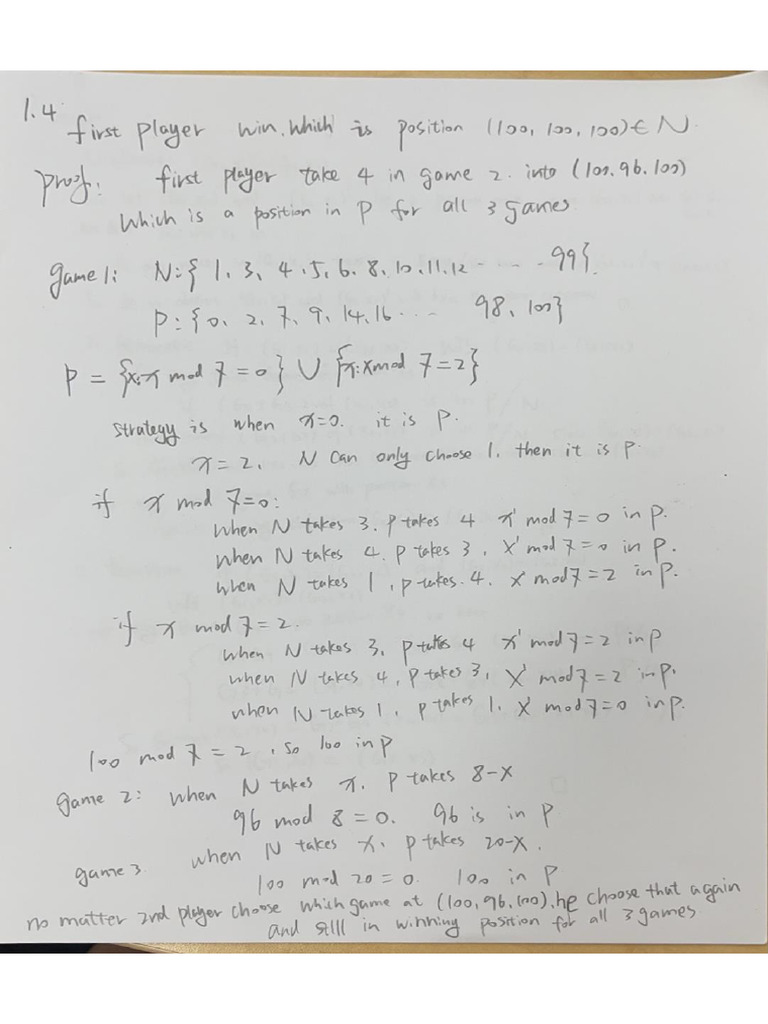 1.4
first player win. which is position (100, 100, 100) ∈ N.
Proof: first player take 4 in game 2. into (100. 96. 100)
Which is a position in P for all 3 games
game 1: N: { 1. 3. 4. 5. 6. 8. 10. 11. 12 - - . . . 99}.
P: {0. 2. 7. 9. 14. 16. . . . 98. 100}
P = {x: x mod 7 = 0} ∪ {x: x mod 7 = 2}
strategy is when x=0. it is P.
x = 2. N can only choose 1. then it is P.
if x mod 7=0:
when N takes 3. P takes 4 x' mod 7 = 0 in P.
when N takes 4. P takes 3. x' mod 7 = 0 in P.
when N takes 1, P takes. 4. x' mod 7 = 2 in P.
if x mod 7 = 2.
when N takes 3. P takes 4 x' mod 7 = 2 in P
when N takes 4, P takes 3, x' mod 7 = 2 in P.
when N takes 1, P takes 1. x' mod 7 = 0 in P.
100 mod 7 = 2, so 100 in P
game 2: when N takes x. P takes 8-x
96 mod 8 = 0. 96 is in P
game 3. when N takes x. P takes 20-x.
100 mod 20 = 0. 100 in P
no matter 2nd player choose which game at (100, 96, 100), he choose that again
and still in winning position for all 3 games